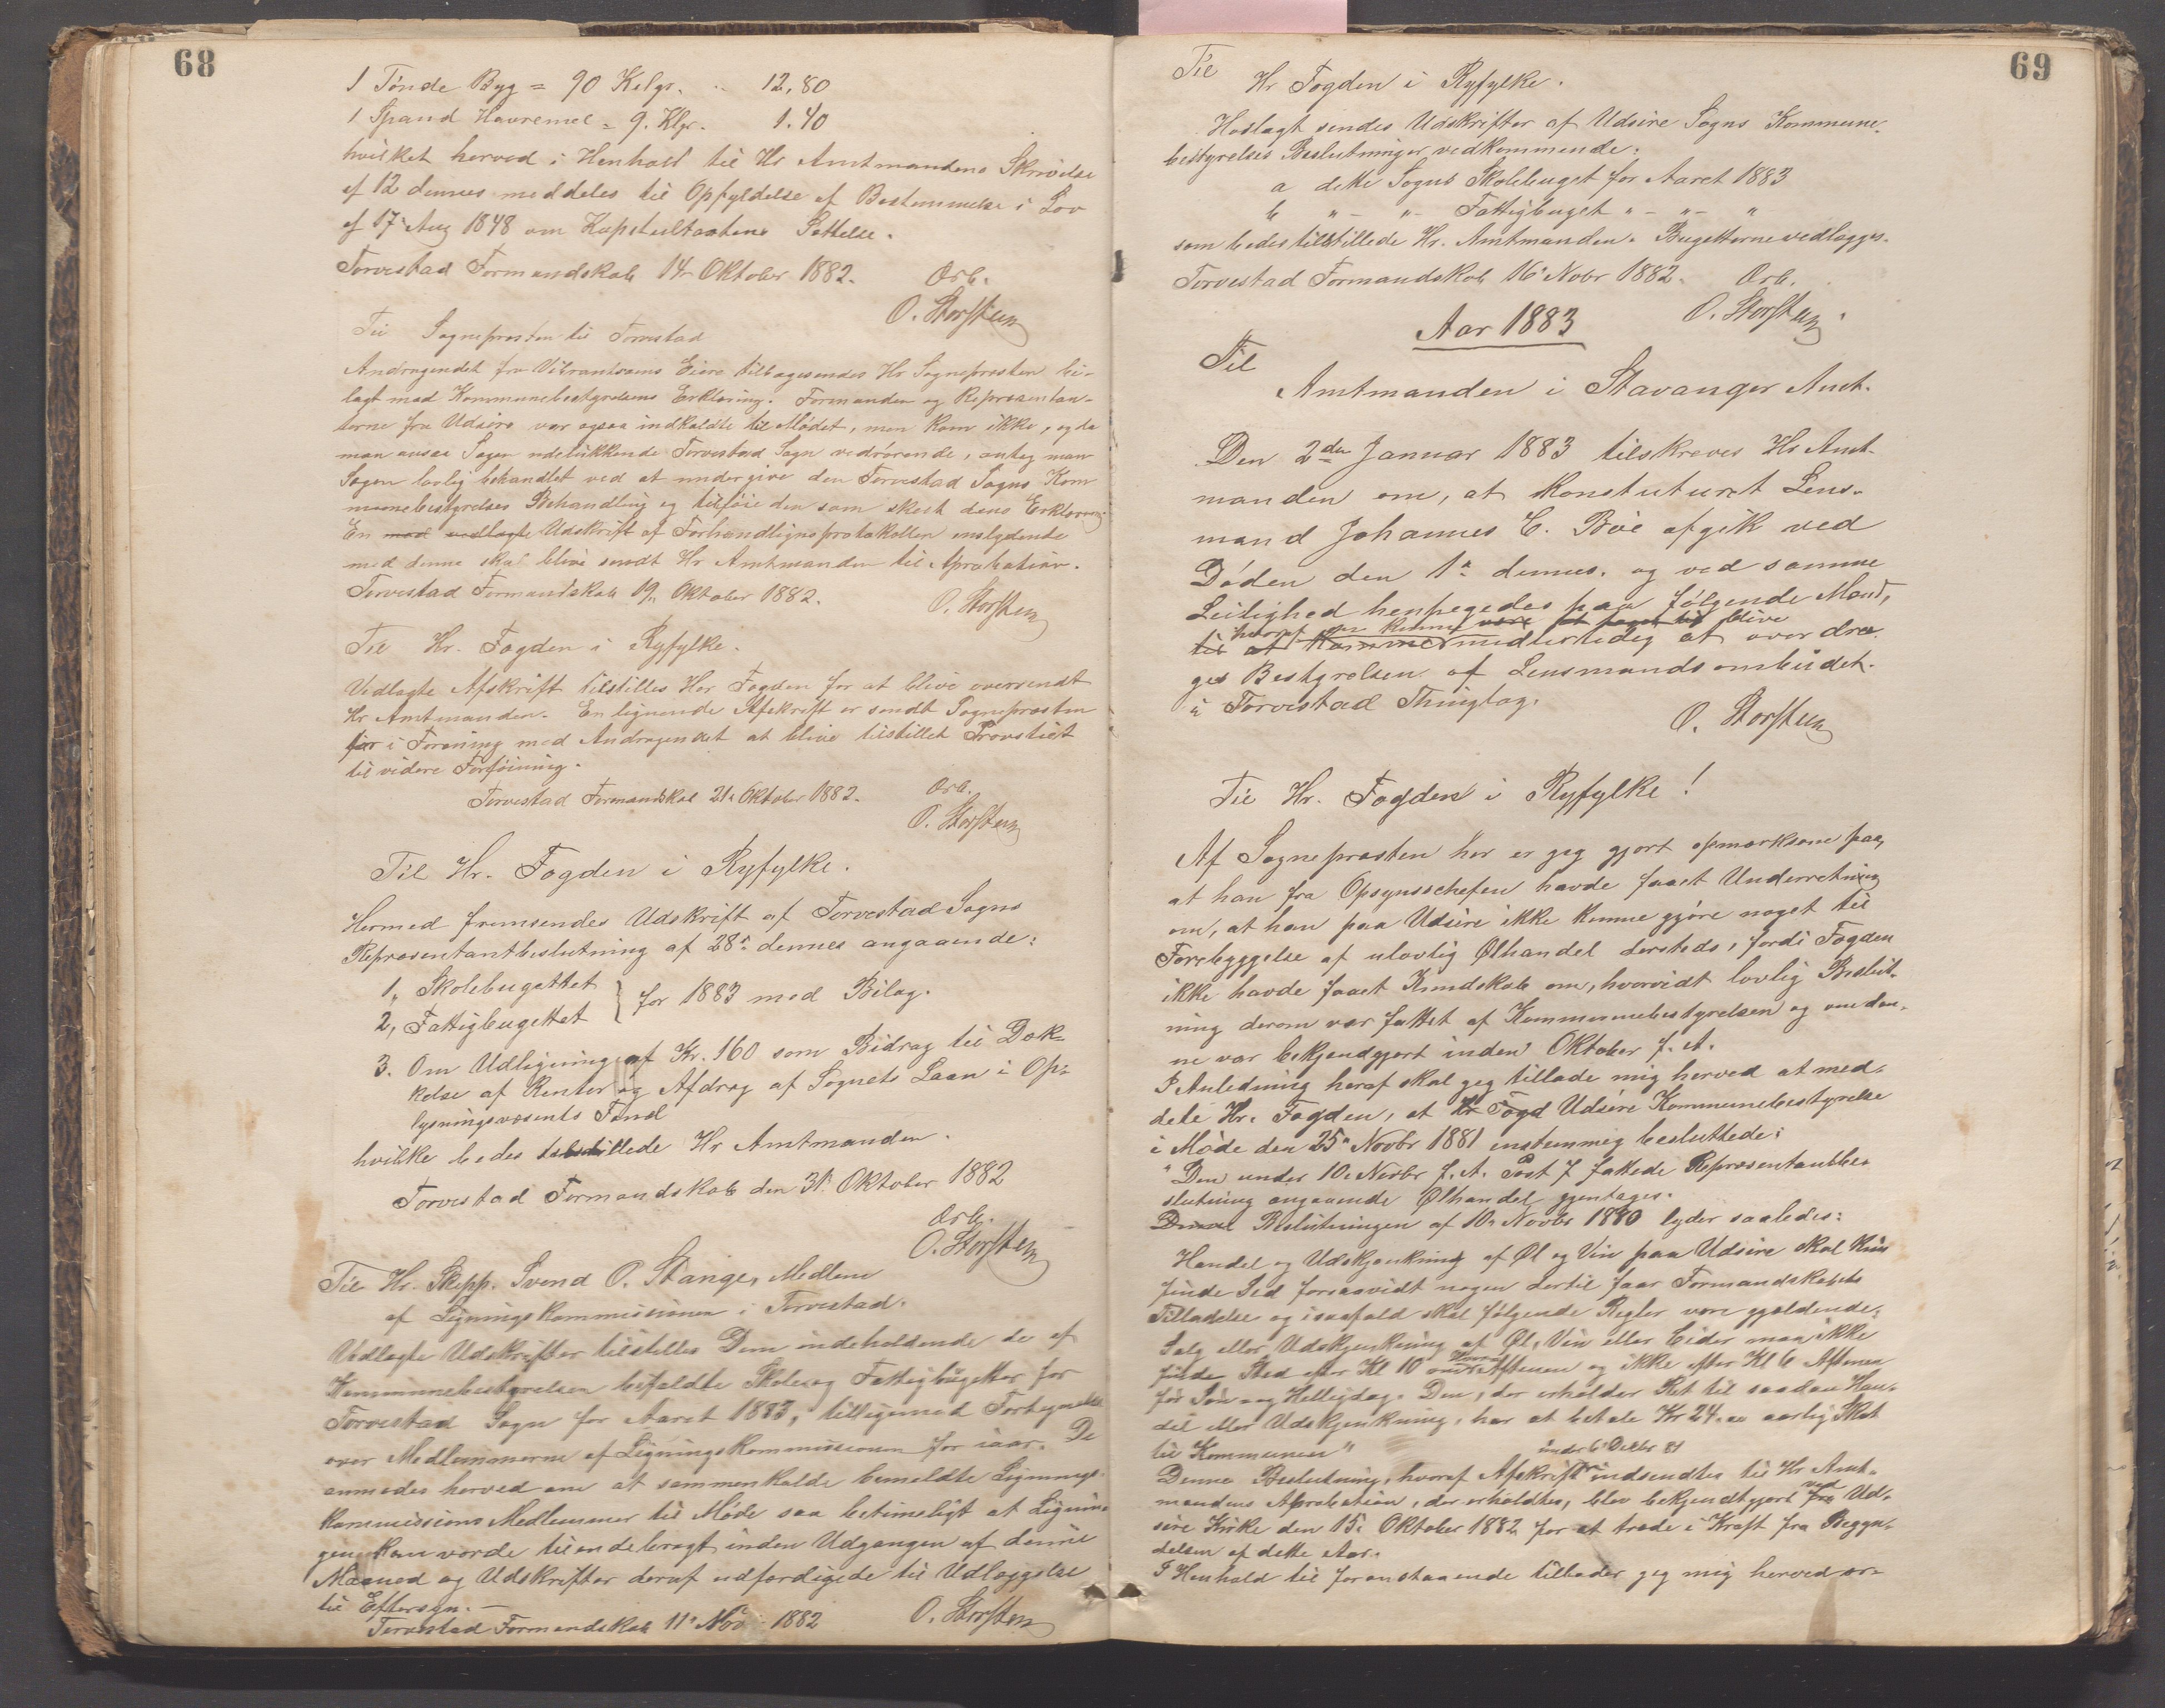 68
1 Tønde Byg = 90 Kilgr. .. 12,80
1 Spand Havremel = 9. Klgr. 1.40
hvilket herved i Henhold til Hr Amtmandens Skrivelse
af 12 dennes meddeles til Opfyldelse af Bestemmelse i Lov
af 17 Aug 1848 om Kapiteltaxtens Settelse.
Torvestad Formandskab 14 Oktober 1882. Ærb.
O. Storsten
Til Sognepresten til Torvestad
Andragendet fra Vibrandsøens Eiere tilbagesendes Hr Sognepresten bi-
lagt med Kommunebestyrelsens Erklæring. Formanden og Repræsentan-
terne fra Udsire var ogsaa indkaldte til Mødet, men kom ikke, og da
man ansaa Sagen udelukkende Torvestad Sogn vedrørende, antog man
Sagen lovlig behandlet ved at undergive den Torvestad Sogns Kom
munebestyrelses Behandling og tilføie den som skeet dens Erklæring
En med vedlagte Udskrift af Forhandlingsprotokollen enslydende
med denne skal blive sendt Hr Amtmanden til Aprobation.
Torvestad Formandskab 19. Oktober 1882.
O. Storsten
Til Hr. Fogden i Ryfylke.
Vedlagte Afskrift tilstilles Her Fogden for at blive oversendt
Hr Amtmanden. En lignende Afskrift er sendt Sognepresten
for i Forening med Andragendet at blive tilstillet Provstiet
til videre Forføining.
Torvestad Formandskab 21. Oktober 1882. Ærb.
O. Storsten
Til Hr. Fogden i Ryfylke.
Hermed fremsendes Udskrift af Torvestad Sogns
Repræsentantbeslutning af 28. dennes angaaende:
1, Skolebugettet
2, Fattigbugettet } for 1883 med Bilag.
3. Om Udligning af Kr. 160 som Bidrag til Dæk-
kelse af Renter og Afdrag af Sognets Laan i Op-
lysningsvæsents Fond
hvilke bedes tilstillede Hr Amtmanden.
Torvestad Formandskab den 31 Oktober 1882
Ærb.
O. Storsten
Til Hr. Skipp. Svend O. Stange, Medlem
af Ligningskommissionen i Torvestad.
Vedlagte Udskrifter tilstilles Dem indeholdende de af
Kommunebestyrelsen Skole og Fattigbugetter for
Torvestad Sogn for Aaret 1883, tilligemed Fortegnelse
over Medlemmerne af Ligningskommissionen for iaar. De
anmodes herved om at sammenkalde bemeldte Lignings-
kommissions Medlemmer til Møde saa betimeligt at Lignin-
gen kan vorde tilendebragt inden Udgangen af denne
Maaned og Udskrifter deraf udfærdigede til Udlæggelse
til Eftersyn. —
Torvestad Formandskab 11. Nov 1882 O. Storsten
69
Til
Hr Fogden i Ryfylke.
Hoslagt sendes Udskrifter af Udsire Sogns Kommune-
bestyrelses Beslutninger vedkommende:
a dette Sogns Skolebuget for Aaret 1883
b " - " - Fattigbuget " - " - "
som bedes tilstillede Hr. Amtmanden. Bugetterne vedlægges.
Torvestad Formandskab 16. Novbr 1882. Ærb.
O. Storsten
Aar 1883
Til
Amtmanden i Stavanger Amt.
Den 2den Januar 1883 tilskreves Hr Amt-
manden om, at Konstituteret Lens-
mand Johannes C. Bøe afgik ved
Døden den 1. dennes. og ved samme
Leilighed henpegedes paa følgende Mænd,
hvoraf en kunne være blive
til at midlertidig at overdra-
ges Bestyrelsen af Lensmandsombudet
i Torvestad Thinglag.
O. Storsten
Til Hr. Fogden i Ryfylke!
Af Sognepresten her er jeg gjort opmærksom paa,
at han fra Opsynschefen havde faaet Underretning
om, at han paa Udsire ikke kunne gjøre noget til
Forebyggelse af ulovlig Ølhandel dersteds, fordi Fogden
ikke havde faaet Kundskab om, hvorvidt lovlig Beslut-
ning derom var fattet af Kommunebestyrelsen og om den-
ne var bekjendgjort inden Oktober f. A.
I Anledning heraf skal jeg tillade mig herved at med-
dele Hr. Fogden, at Hr Fogd Udsire Kommunebestyrelse
i Møde den 25. Novbr 1881 enstemmig besluttede:
"Den under 10. Novbr f. A. Post 7 fattede Repræsentantbe-
slutning angaaende Ølhandel gjentages.
Beslutningen af 10. Novbr 1880 lyder saaledes:
Handel og Udskjænkning af Øl og Vin paa Udsire skal kun
finde Sted forsaavidt nogen dertil faar Formandskabets
Tilladelse og isaafald skal følgende Regler være gjældende:
Salg eller Udskjenkning af Øl, Vin eller Cider maa ikke
finde Sted efter Kl 10 om Aftenen og ikke efter Kl 6 Aftenen
før Søn- og Helligdag. Den, der erholder Ret til saadan Han-
del eller Udskjenkning, har at betale Kr 24.00 aarlig Skat
til Kommunen"
under 6 Decbr 81
Denne Beslutning, hvoraf Afskrift indsendtes til Hr Amt-
mandens Aprobation, der erholdtes, blev bekjendtgjort ved fra Ud-
sire Kirke den 15. Oktober 1882 for at træde i Kraft fra Begyn-
delsen af dette Aar.
I Henhold til foranstaaende tillader jeg mig herved ær-